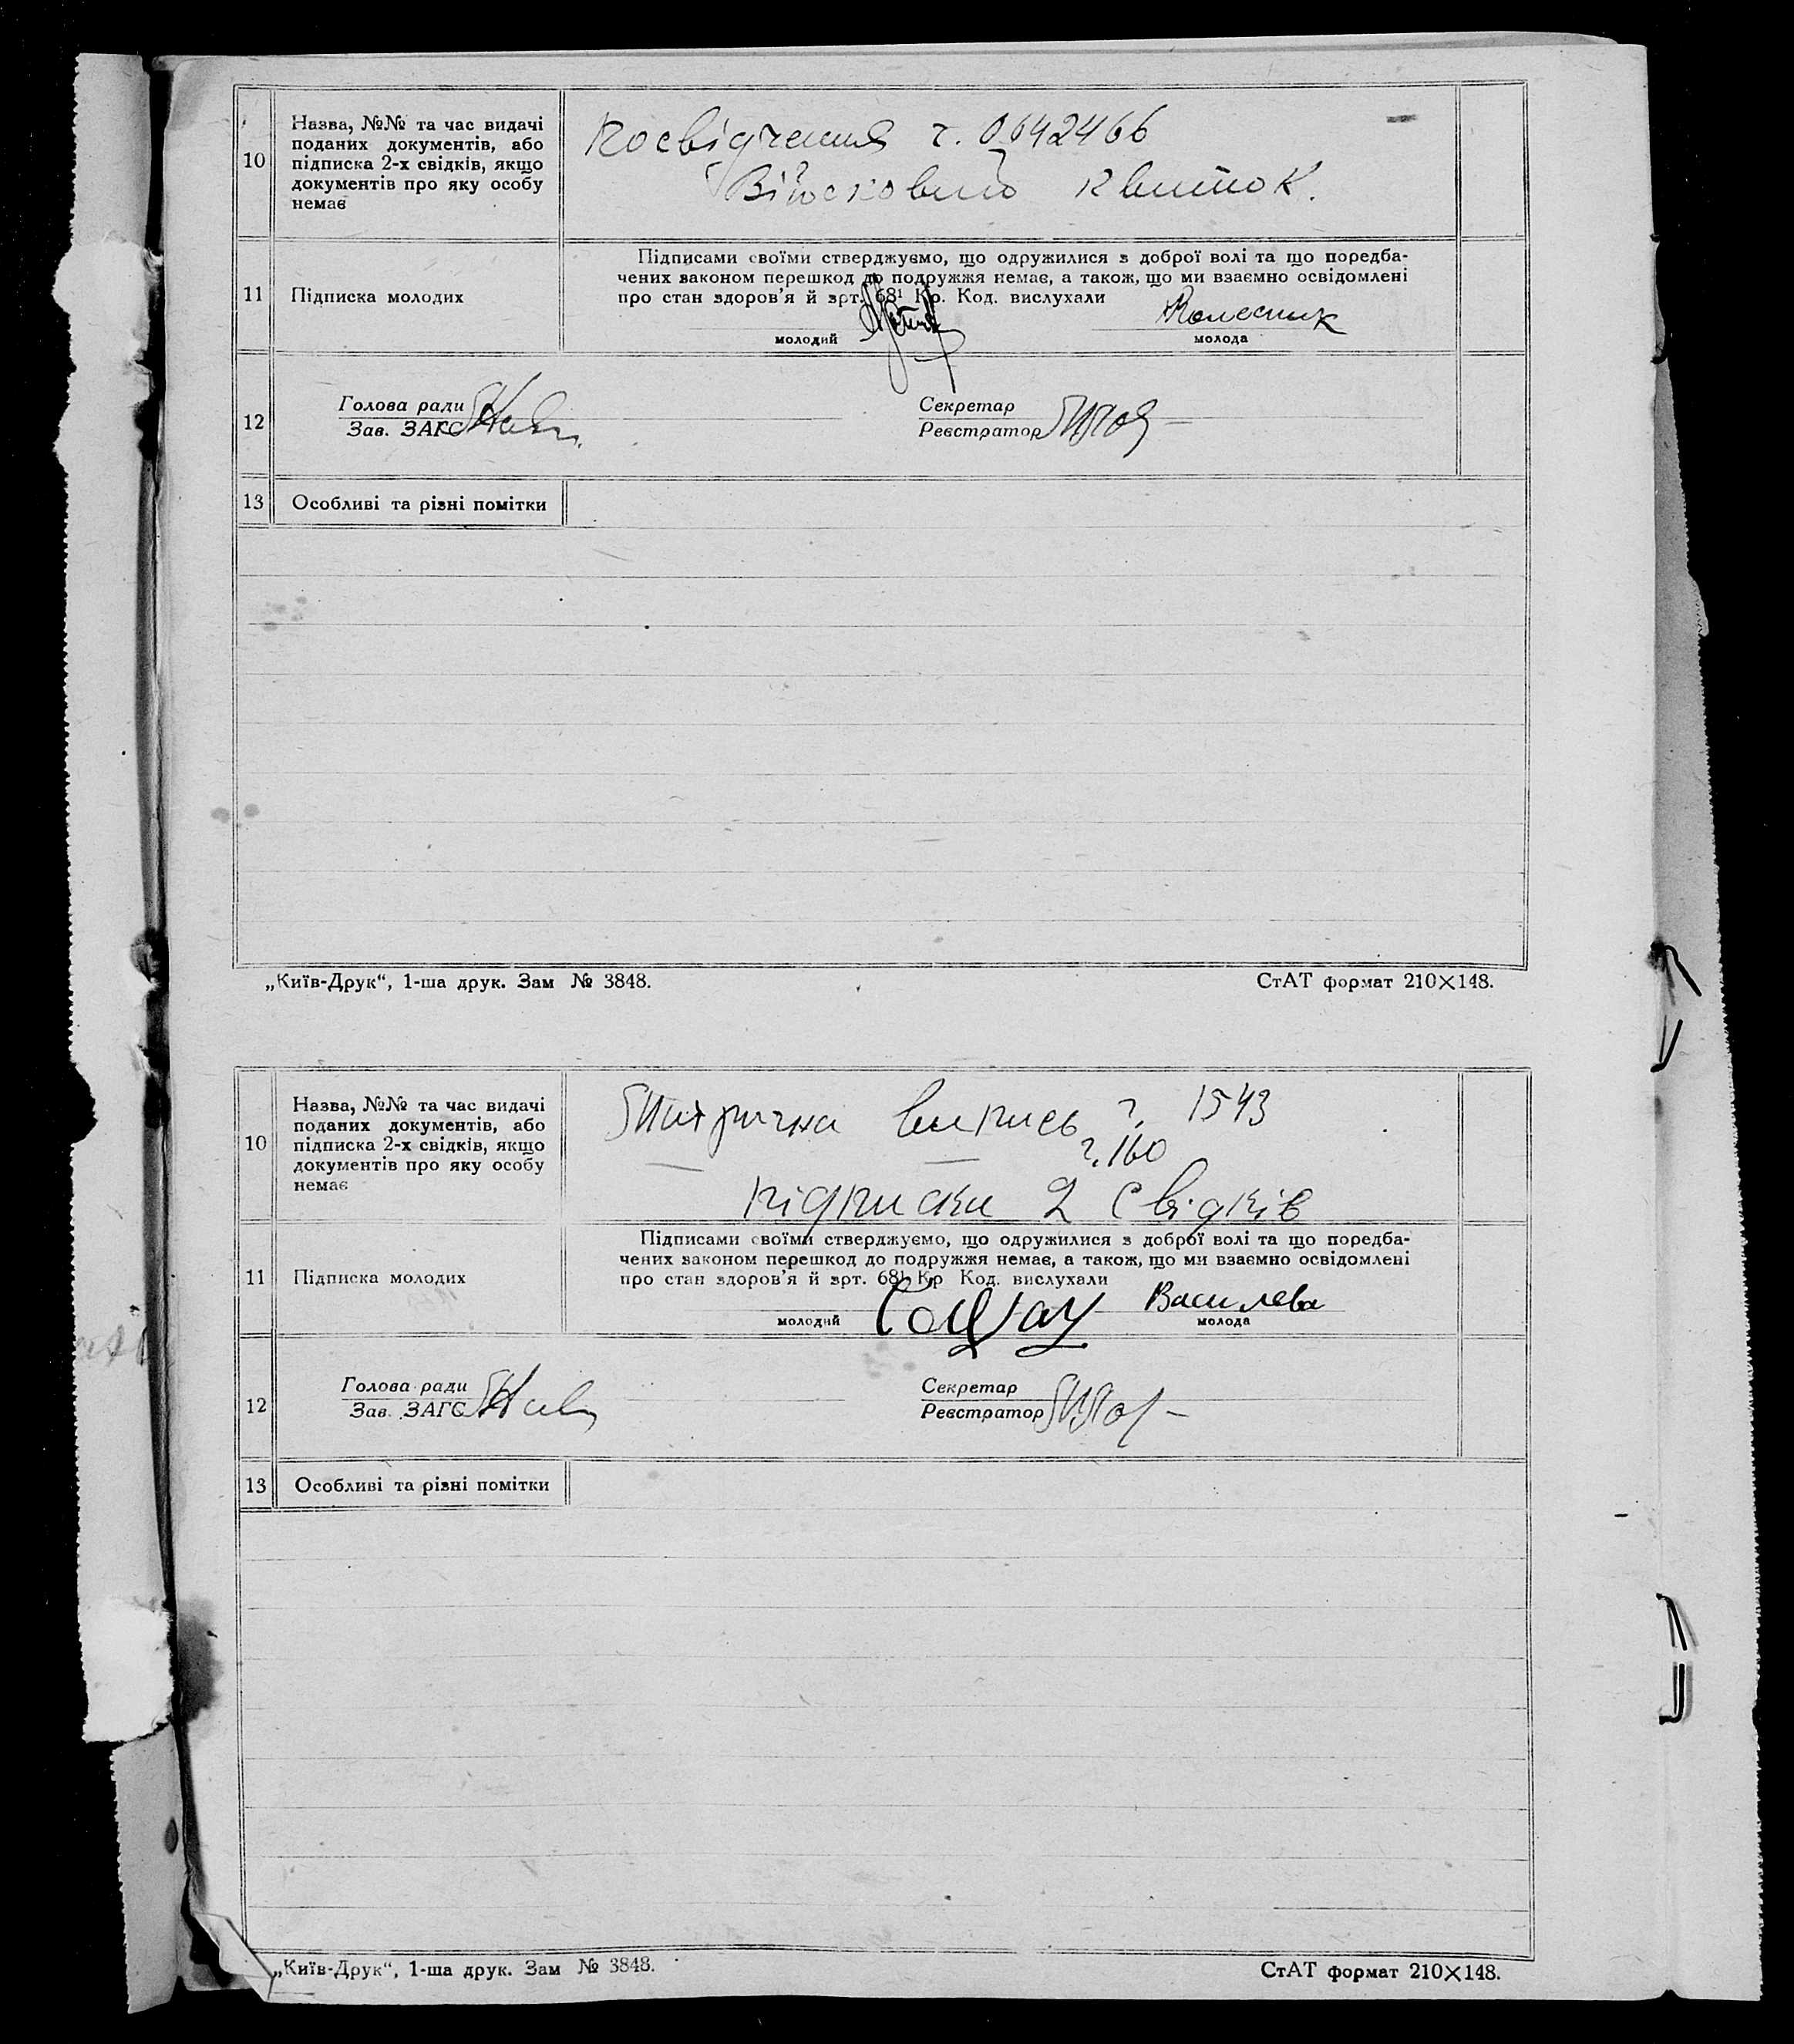 10
Назва, №№ та час видачі
поданих документів, або
підписка 2-х свідків, якщо
документів про яку особу
немає
Посвідчення ч. 0642466
Військовий квиток.
11
Підписка молодих
Підписами своїми стверджуємо, що одружилися з доброї волі та що поредба-
чених законом перешкод до подружжя немає, а також, що ми взаємно освідомлені
про стан здоров'я й зрт. 68¹ Кр. Код. вислухали
Колесник
молодий
молода
12
Голова ради
Зав. ЗАГС
Секретар
Реєстратор
13
Особливі та різні помітки
„Київ-Друк“, 1-ша друк. Зам № 3848.
СтАТ формат 210×148.
10
Назва, №№ та час видачі
поданих документів, або
підписка 2-х свідків, якщо
документів про яку особу
немає
Митрична випись ч. 1543
ч. 160
підписки 2 свідків
11
Підписка молодих
Підписами своїми стверджуємо, що одружилися з доброї волі та що поредба-
чених законом перешкод до подружжя немає, а також, що ми взаємно освідомлені
про стан здоров'я й зрт. 68¹ Кр Код. вислухали
Василева
молодий
молода
12
Голова ради
Зав. ЗАГС
Секретар
Реєстратор
13
Особливі та різні помітки
„Київ-Друк“, 1-ша друк. Зам № 3848.
СтАТ формат 210×148.